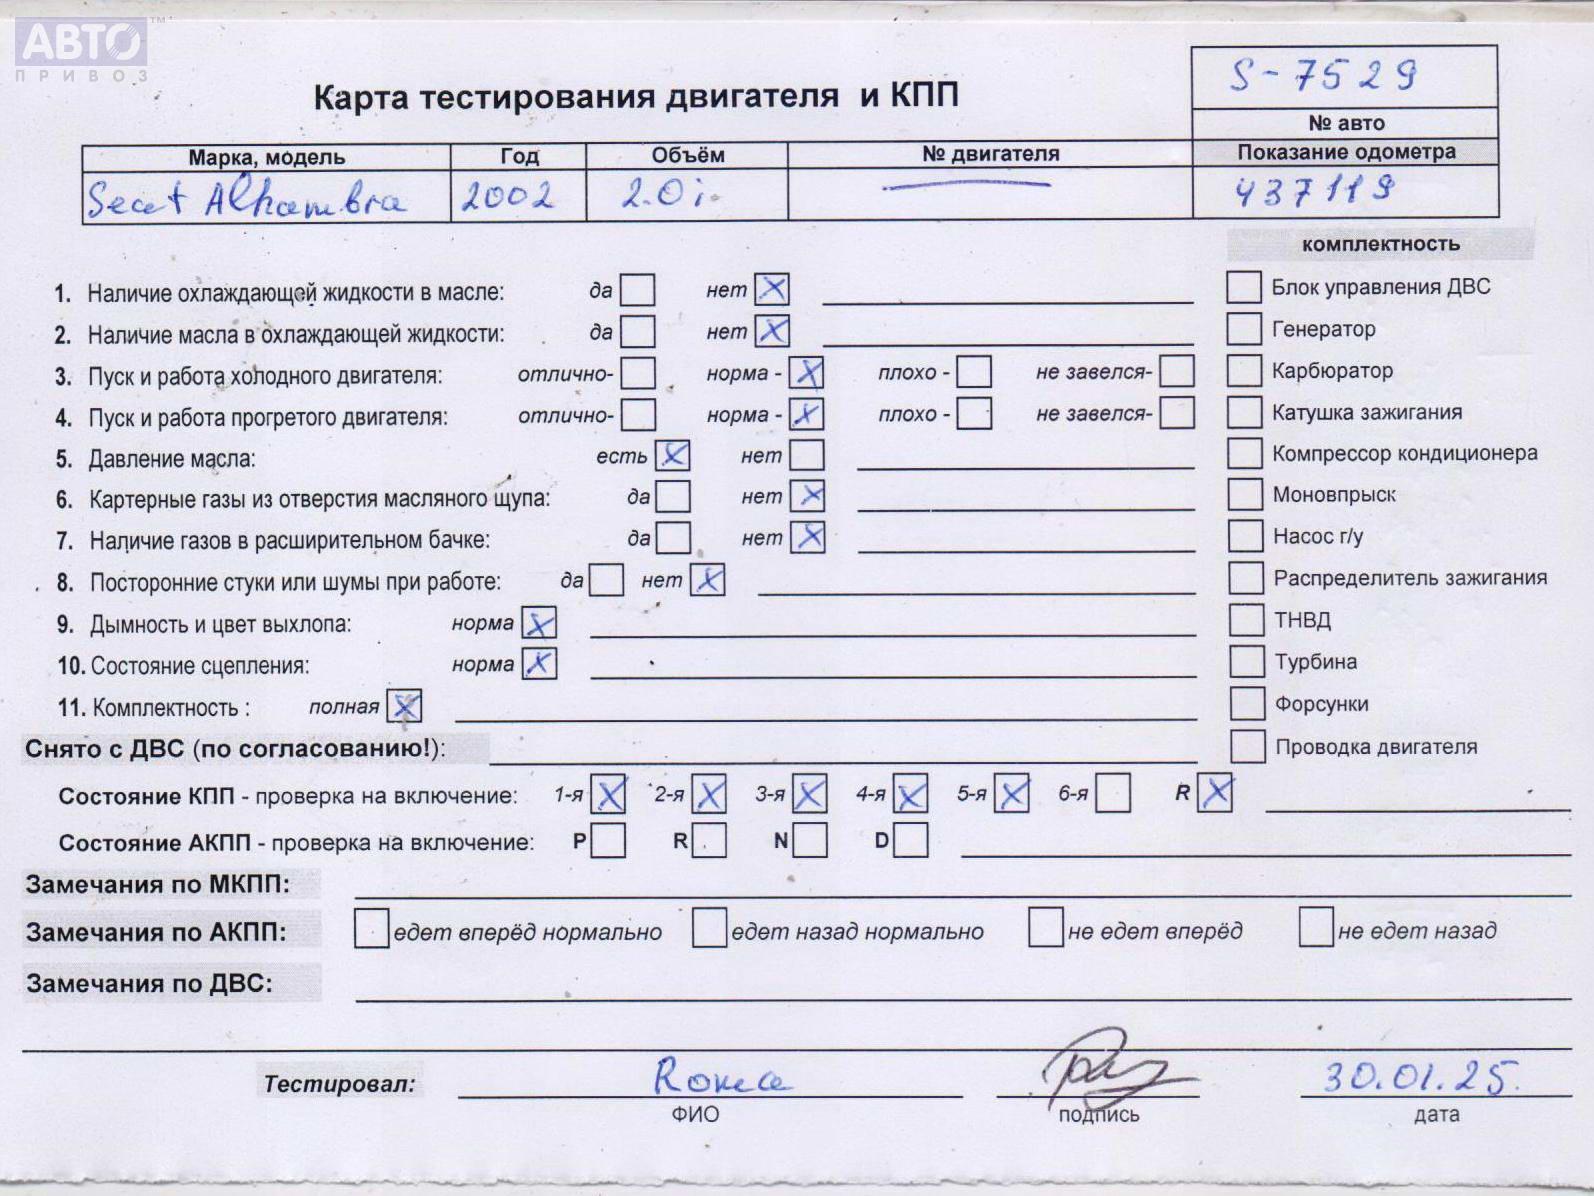 АВТО™
ПРИВОЗ
S-7529
Карта тестирования двигателя и КПП
№ авто
Марка, модель Год Объём № двигателя Показание одометра
Seat Alhambra 2002 2.0i 437119
комплектность
1. Наличие охлаждающей жидкости в масле: да нет X Блок управления ДВС
2. Наличие масла в охлаждающей жидкости: да нет X Генератор
3. Пуск и работа холодного двигателя: отлично- норма - X плохо - не завелся- Карбюратор
4. Пуск и работа прогретого двигателя: отлично- норма - X плохо - не завелся- Катушка зажигания
5. Давление масла: есть X нет Компрессор кондиционера
6. Картерные газы из отверстия масляного щупа: да нет X Моновпрыск
7. Наличие газов в расширительном бачке: да нет X Насос г/у
8. Посторонние стуки или шумы при работе: да нет X Распределитель зажигания
9. Дымность и цвет выхлопа: норма X ТНВД
10. Состояние сцепления: норма X Турбина
11. Комплектность : полная X Форсунки
Снято с ДВС (по согласованию!): Проводка двигателя
Состояние КПП - проверка на включение: 1-я X 2-я X 3-я X 4-я X 5-я X 6-я R X
Состояние АКПП - проверка на включение: P R N D
Замечания по МКПП:
Замечания по АКПП: едет вперёд нормально едет назад нормально не едет вперёд не едет назад
Замечания по ДВС:
Тестировал: Roma 30.01.25.
ФИО подпись дата